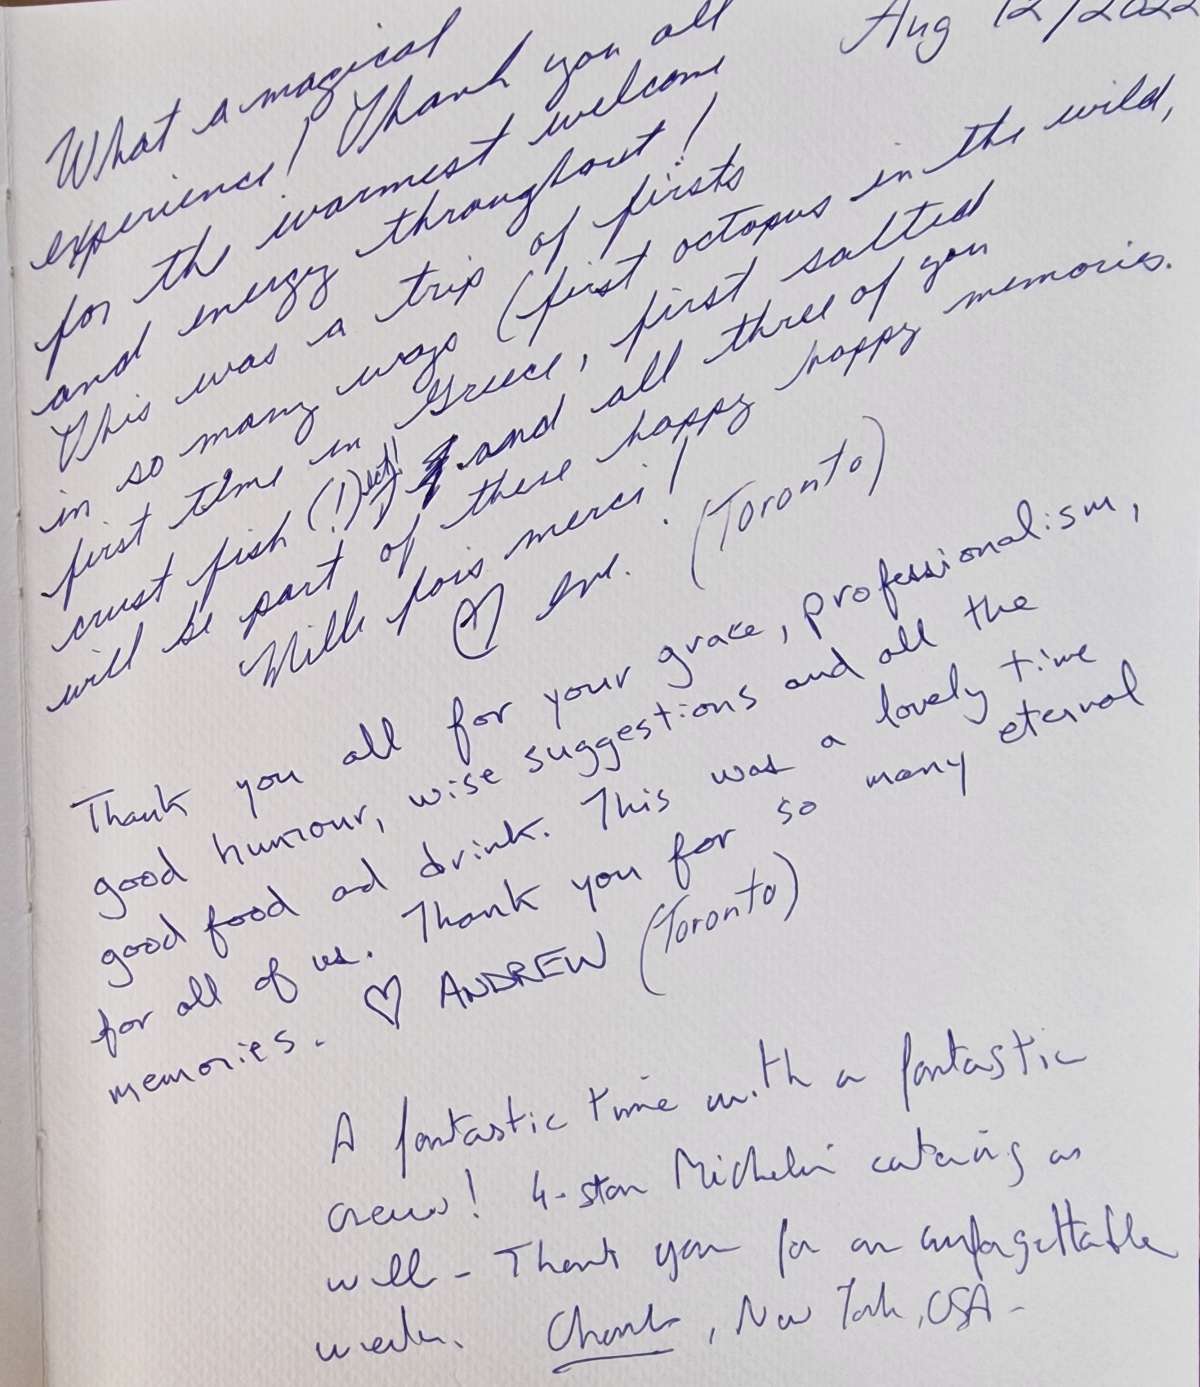 Aug 12/2022
What a magical
experience! Thank you all
for the warmest welcome
and energy throughout!
This was a trip of firsts
in so many ways (first octopus in the wild,
first time in Greece, first salted
crust fish (!) ect! and all three of you
will be part of these happy happy memories.
Mille fois merci!
♡ Eve. (Toronto)
Thank you all for your grace, professionalism,
good humour, wise suggestions and all the
good food ad drink. This was a lovely time
for all of us. Thank you for so many eternal
memories. ♡ ANDREW (Toronto)
A fantastic time with a fantastic
crew! 4-star Michelin catering as
well - Thank you for an unforgettable
week. , New York, USA -